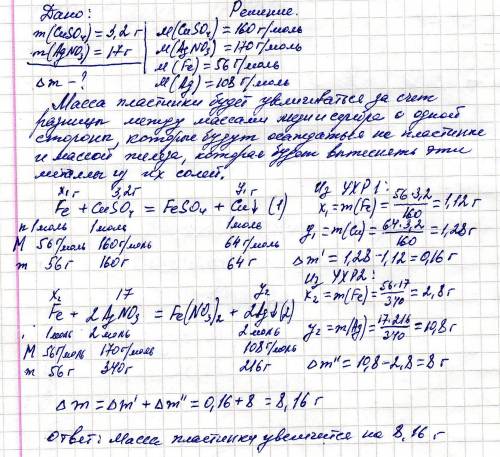 Дано:
m(CuSO4) = 3,2 г
m(AgNO3) = 17г
Δm - ?
Решение.
M(CuSO4) = 160г/моль
M(AgNO3) = 170г/моль
M(Fe) = 56г/моль
M(Ag) = 108г/моль
Масса пластинки будет увеличиваться за счет
разницы между массами меди и серебра с одной
стороны, которые будут осаждаться на пластинке
и массой железа, которая будет вытеснять эти
металлы из их солей.
x1г 3,2г y1г
Fe + CuSO4 = FeSO4 + Cu↓ (1)
n 1моль 1моль 1моль
M 56г/моль 160г/моль 64г/моль
m 56г 160г 64г
Из УХР1:
x1 = m(Fe) = 56·3,2/160 = 1,12г
y1 = m(Cu) = 64·3,2/160 = 1,28г
Δm' = 1,28 - 1,12 = 0,16г
x2 17 y2
Fe + 2AgNO3 = Fe(NO3)2 + 2Ag↓(2)
1моль 2моль 2моль
M 56г/моль 170г/моль 108г/моль
m 56г 340г 216г
Из УХР2:
x2 = m(Fe) = 56·17/340 = 2,8г
y2 = m(Ag) = 17·216/340 = 10,8г
Δm'' = 10,8 - 2,8 = 8г
Δm = Δm' + Δm'' = 0,16 + 8 = 8,16 г
Ответ: Масса пластинки увеличится на 8,16 г